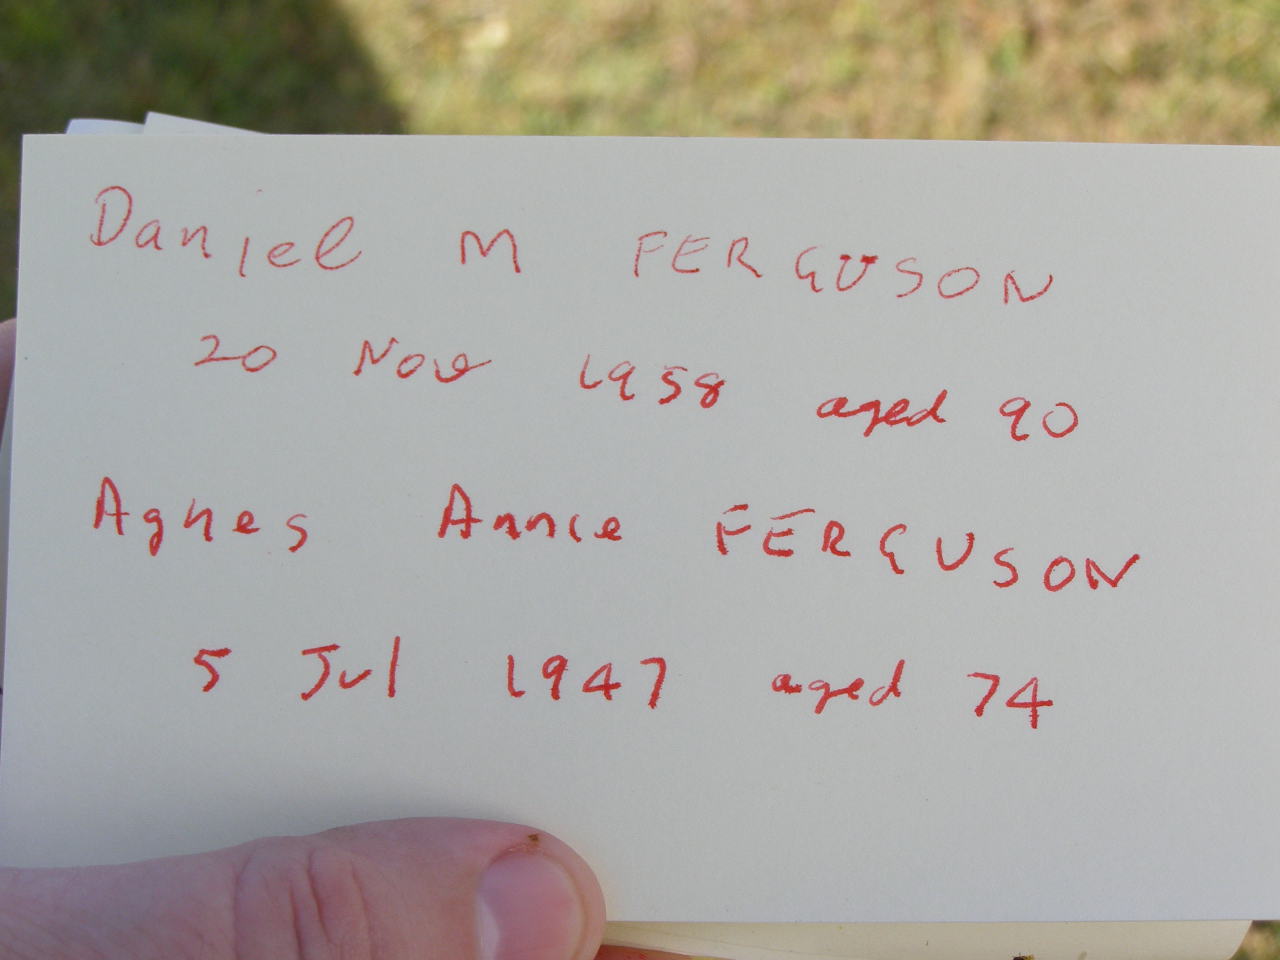 Daniel M FERGUSON
20 Nov 1958 aged 90
Agnes Annie FERGUSON
5 Jul 1947 aged 74